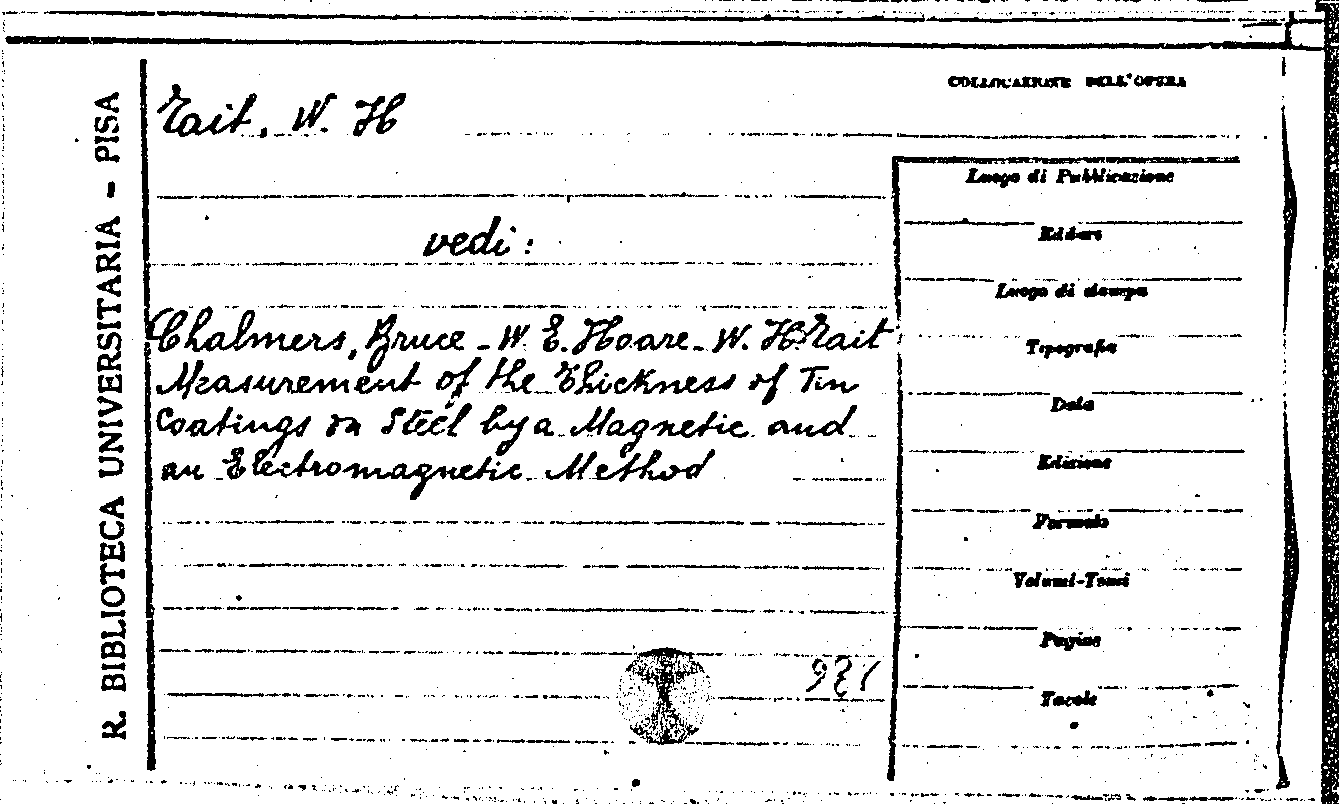 R. BIBLIOTECA UNIVERSITARIA - PISA
COLLOCAZIONE DELL'OPERA
Tait, W. H
vedi:
Chalmers, Bruce - W. E. Hoare - W. H Tait
Measurement of the Thickness of Tin
Coatings on Steel by a Magnetic and
an Electromagnetic Method
Luogo di Pubblicazione
Editore
Luogo di stampa
Tipografia
Data
Edizione
Formato
Volumi-Tomi
Pagine
Tavole